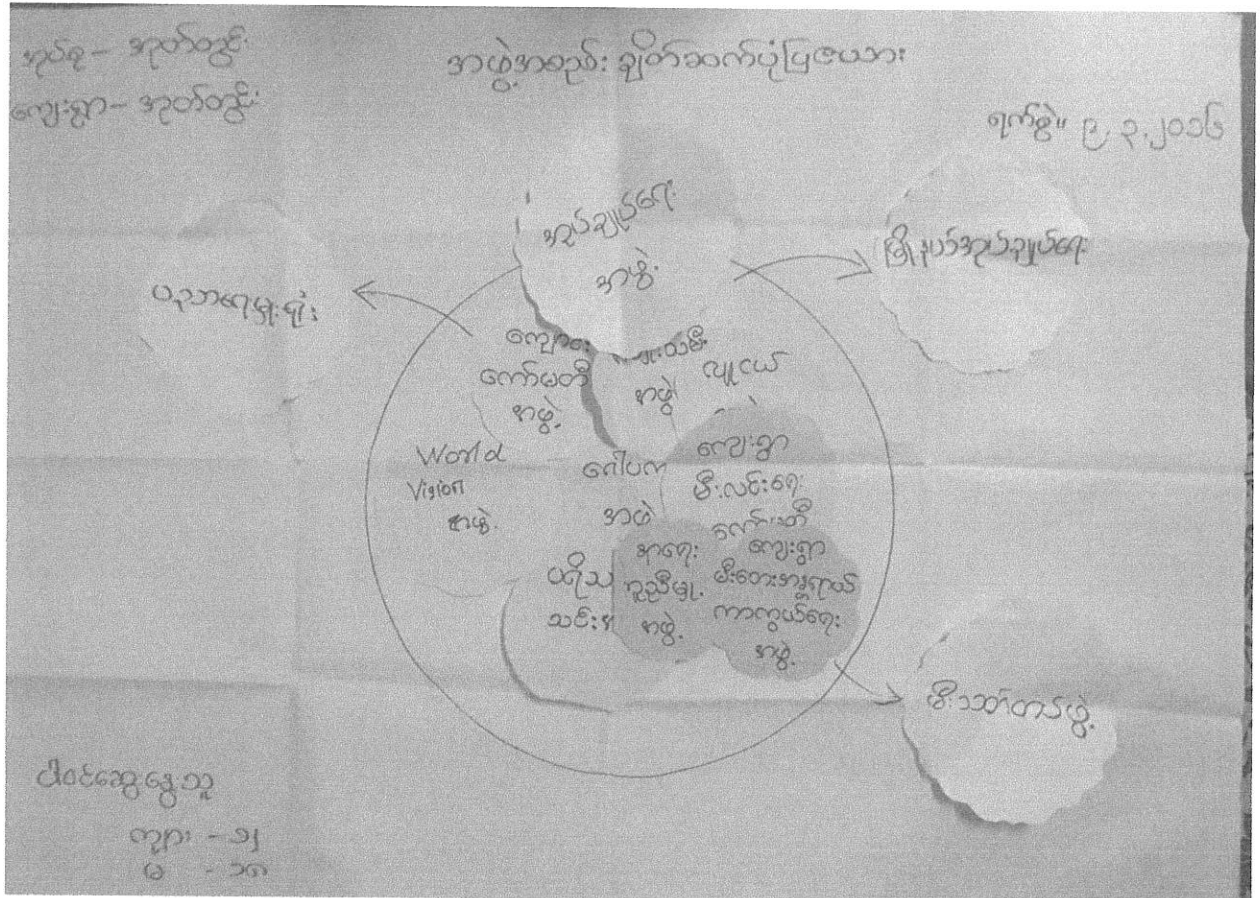 အုပ်စု - အုတ်တွင်း
ကျေးရွာ - အုတ်တွင်း
အဖွဲ့အစည်း ချိတ်ဆက်ပုံပြဇယား
ရက်စွဲ။ ၉.၃.၂၀၁၆
အုပ်ချုပ်ရေး
အဖွဲ့
မြို့နယ်အုပ်ချုပ်ရေး
ပညာရေးမှူးရုံး
ကျောင်း
ကော်မတီ
အဖွဲ့
သမီး
လူငယ်
အဖွဲ့
World
Vision
အဖွဲ့
ဂေါပက
အဖွဲ့
ကျေးရွာ
မီးလင်းရေး
ကော်မတီ
ပရိသ
သင်း
နာရေး
ကူညီမှု
အဖွဲ့
ကျေးရွာ
မီးဘေးအန္တရာယ်
ကာကွယ်ရေး
အဖွဲ့
မီးသတ်တပ်ဖွဲ့
ပါဝင်ဆွေးနွေးသူ
ကျား -
မ -